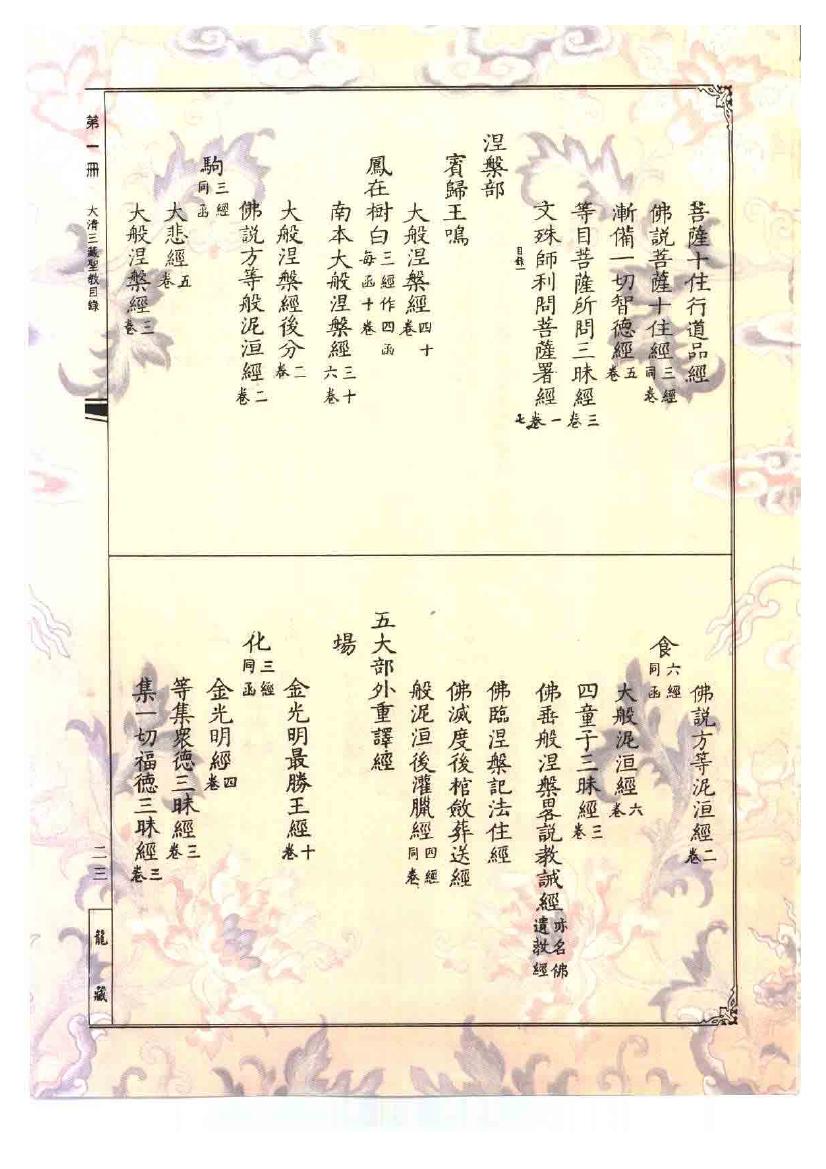 菩薩十住行道品經
佛說菩薩十住經三經同卷
漸備一切智德經五卷
等目菩薩所問三昧經三卷
文殊師利問菩薩署經一卷
目錄一
七
涅槃部
賓歸王鳴
大般涅槃經四十卷
鳳在樹白三經作四函每函十卷
南本大般涅槃經三十六卷
大般涅槃經後分二卷
佛說方等般泥洹經二卷
駒三經同函
大悲經五卷
大般涅槃經三卷
佛說方等泥洹經二卷
食六經同函
大般泥洹經六卷
四童子三昧經三卷
佛垂般涅槃畧說教誡經亦名佛遺教經
佛臨涅槃記法住經
佛滅度後棺斂葬送經
般泥洹後灌臘經四經同卷
五大部外重譯經
場
金光明最勝王經十卷
化三經同函
金光明經四卷
等集眾德三昧經三卷
集一切福德三昧經三卷
第一冊
大清三藏聖教目錄
二三
龍藏